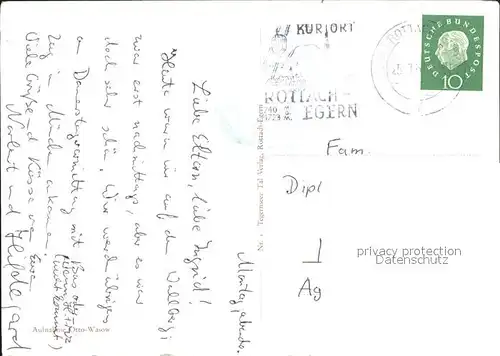 KURORT
ROTTACH-
EGERN
740
DEUTSCHE BUNDESPOST
10
Fam.
Dipl
Ag
privacy protection
Datenschutz
Montag, abends.
Liebe Eltern, liebe Ingrid!
Heute waren wir auf dem Wallberg,
zwar erst nachmittags, aber es war
doch sehr schön. Wir werden übrigens
am Donnerstagvormittag mit Bus oder
Zug in München ankommen.
Viele Grüße und Küsse von Euren
Norbert und Hildegard
Tegernseer Tal Verlag, Rottach-Egern
Aufnahme Otto-Wasow